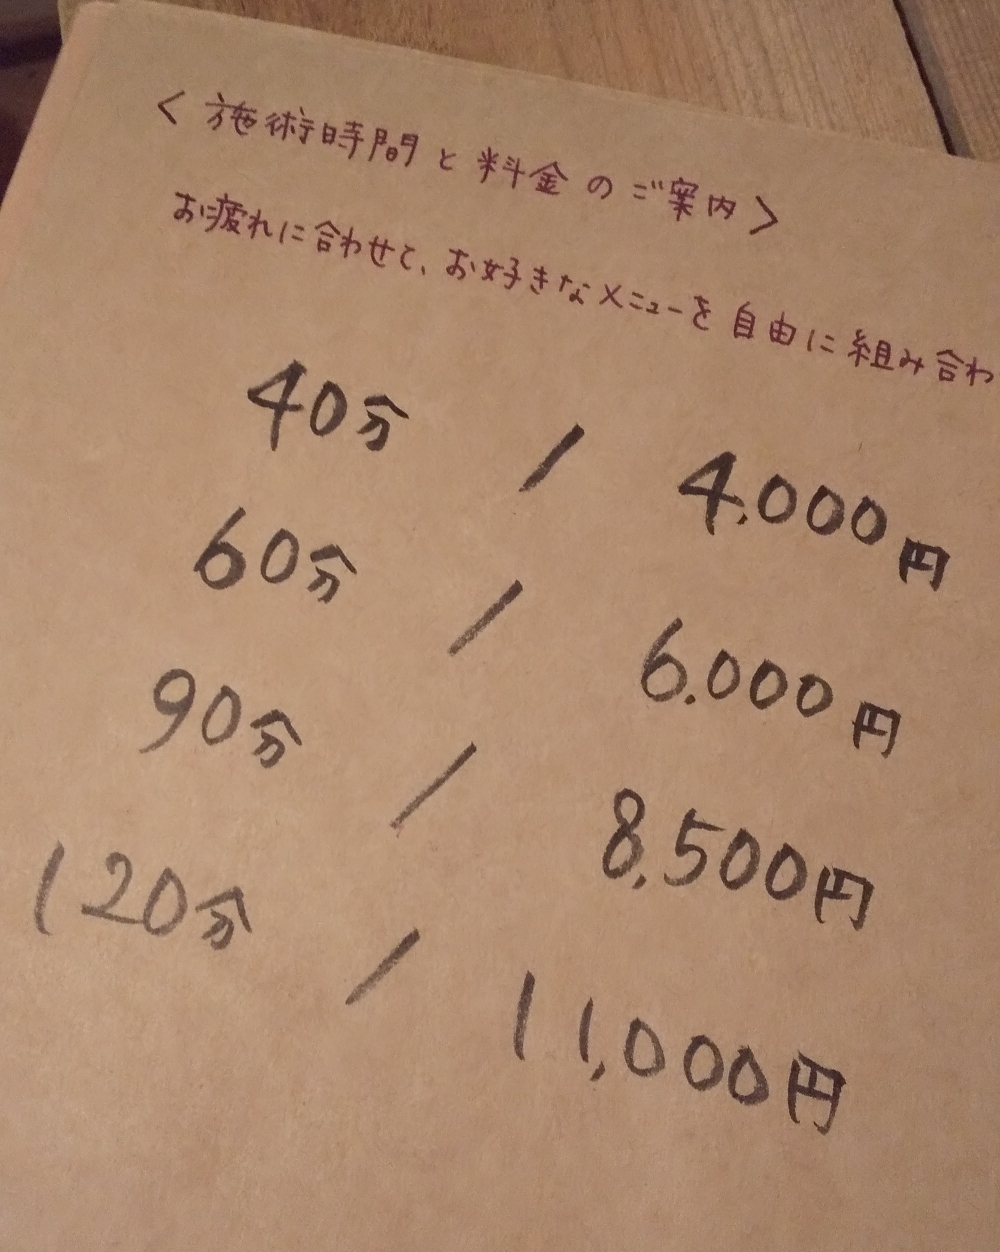 <施術時間と料金のご案内>
お疲れに合わせて、お好きなメニューを自由に組み合わ
40分 / 4,000円
60分 / 6.000円
90分 / 8,500円
120分 / 11,000円